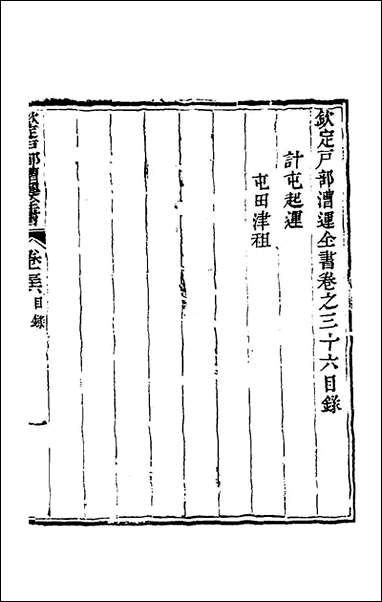 欽定戸部漕運全書卷之三十六目錄
計屯起運
屯田津租
欽定戸部漕運全書
卷三十六
目錄
一